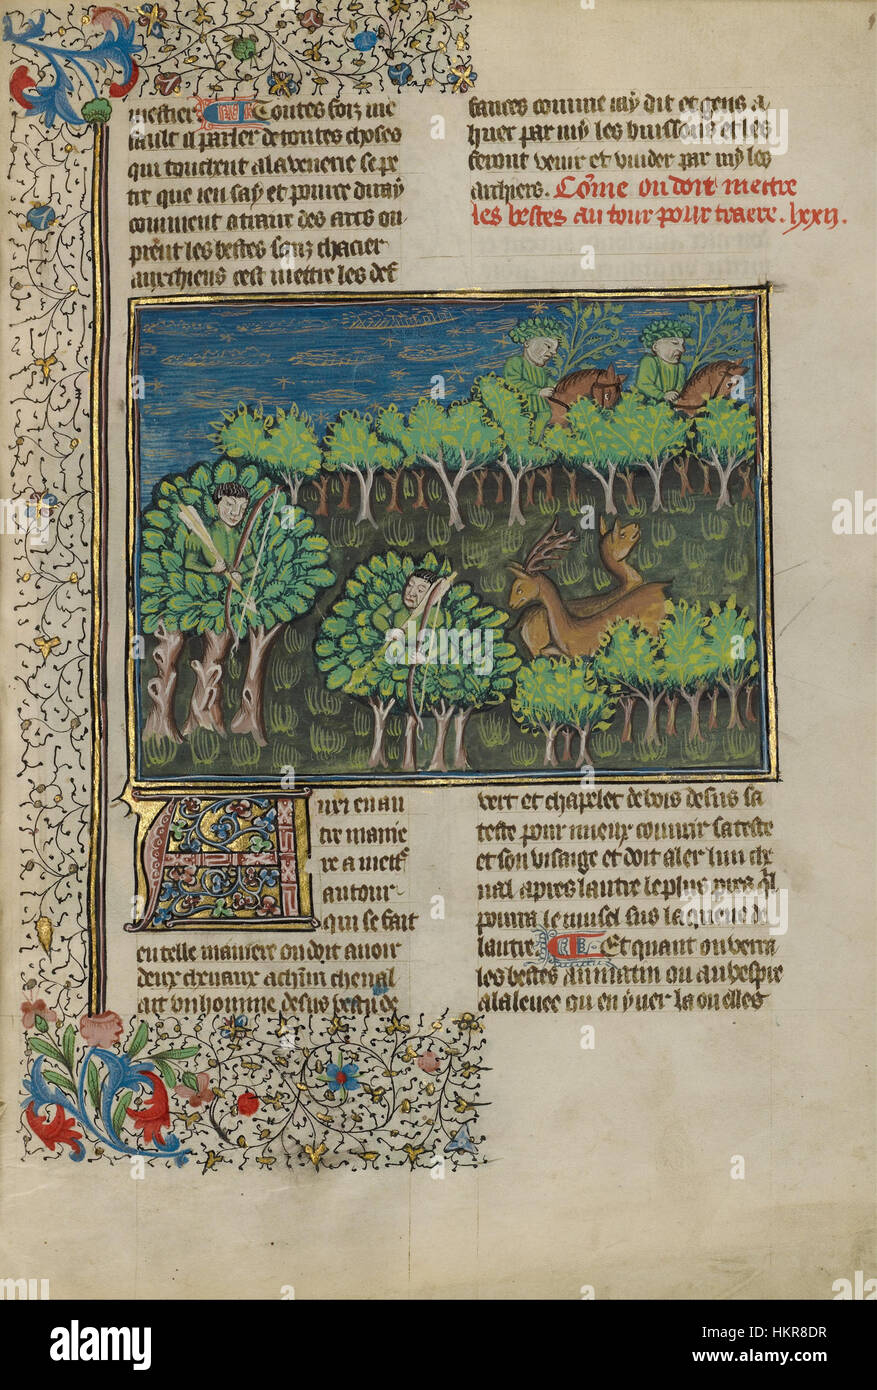 mestier. Toutes foiz me
fault il parler de toutes choses
qui touchent a la venerie se pe
tir que ien say et pource diray
comment a traire des arcs on
prent les bestes sanz chacier
aux chiens cest mettre les def
fances comme iay dit et gens a
huer par my les buissons et les
feront venir et vuider par my les
archiers. Cõme on doit mettre
les bestes au tour pour traere. lxxii.
Uuri en au
tre manie
re a mett'
au tour
qui se fait
en telle maniere on doit avoir
deux chevaux a chũn cheval
ait un homme desus vestu de
vert et chapelet de bois desus sa
teste pour mieux couvrir sa teste
et son visaige et doit aler lun che
val apres lautre le plus pres q̃l
pourra le musel sus la queue de
lautre. Et quant on verra
les bestes au matin ou au vespre
a la levee ou en yver la ou elles
a
alamy stock photo
HKR8DR
www.alamy.com